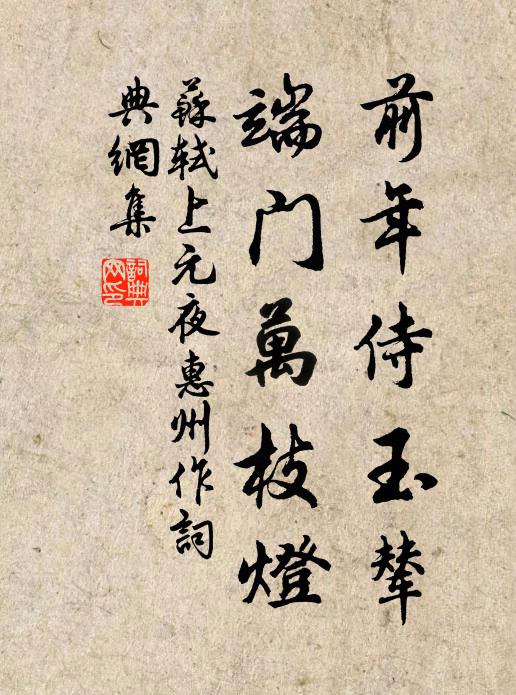 前年侍玉輦
端門萬枝燈
蘇軾上元夜惠州作詞
典網集
詞典
网印